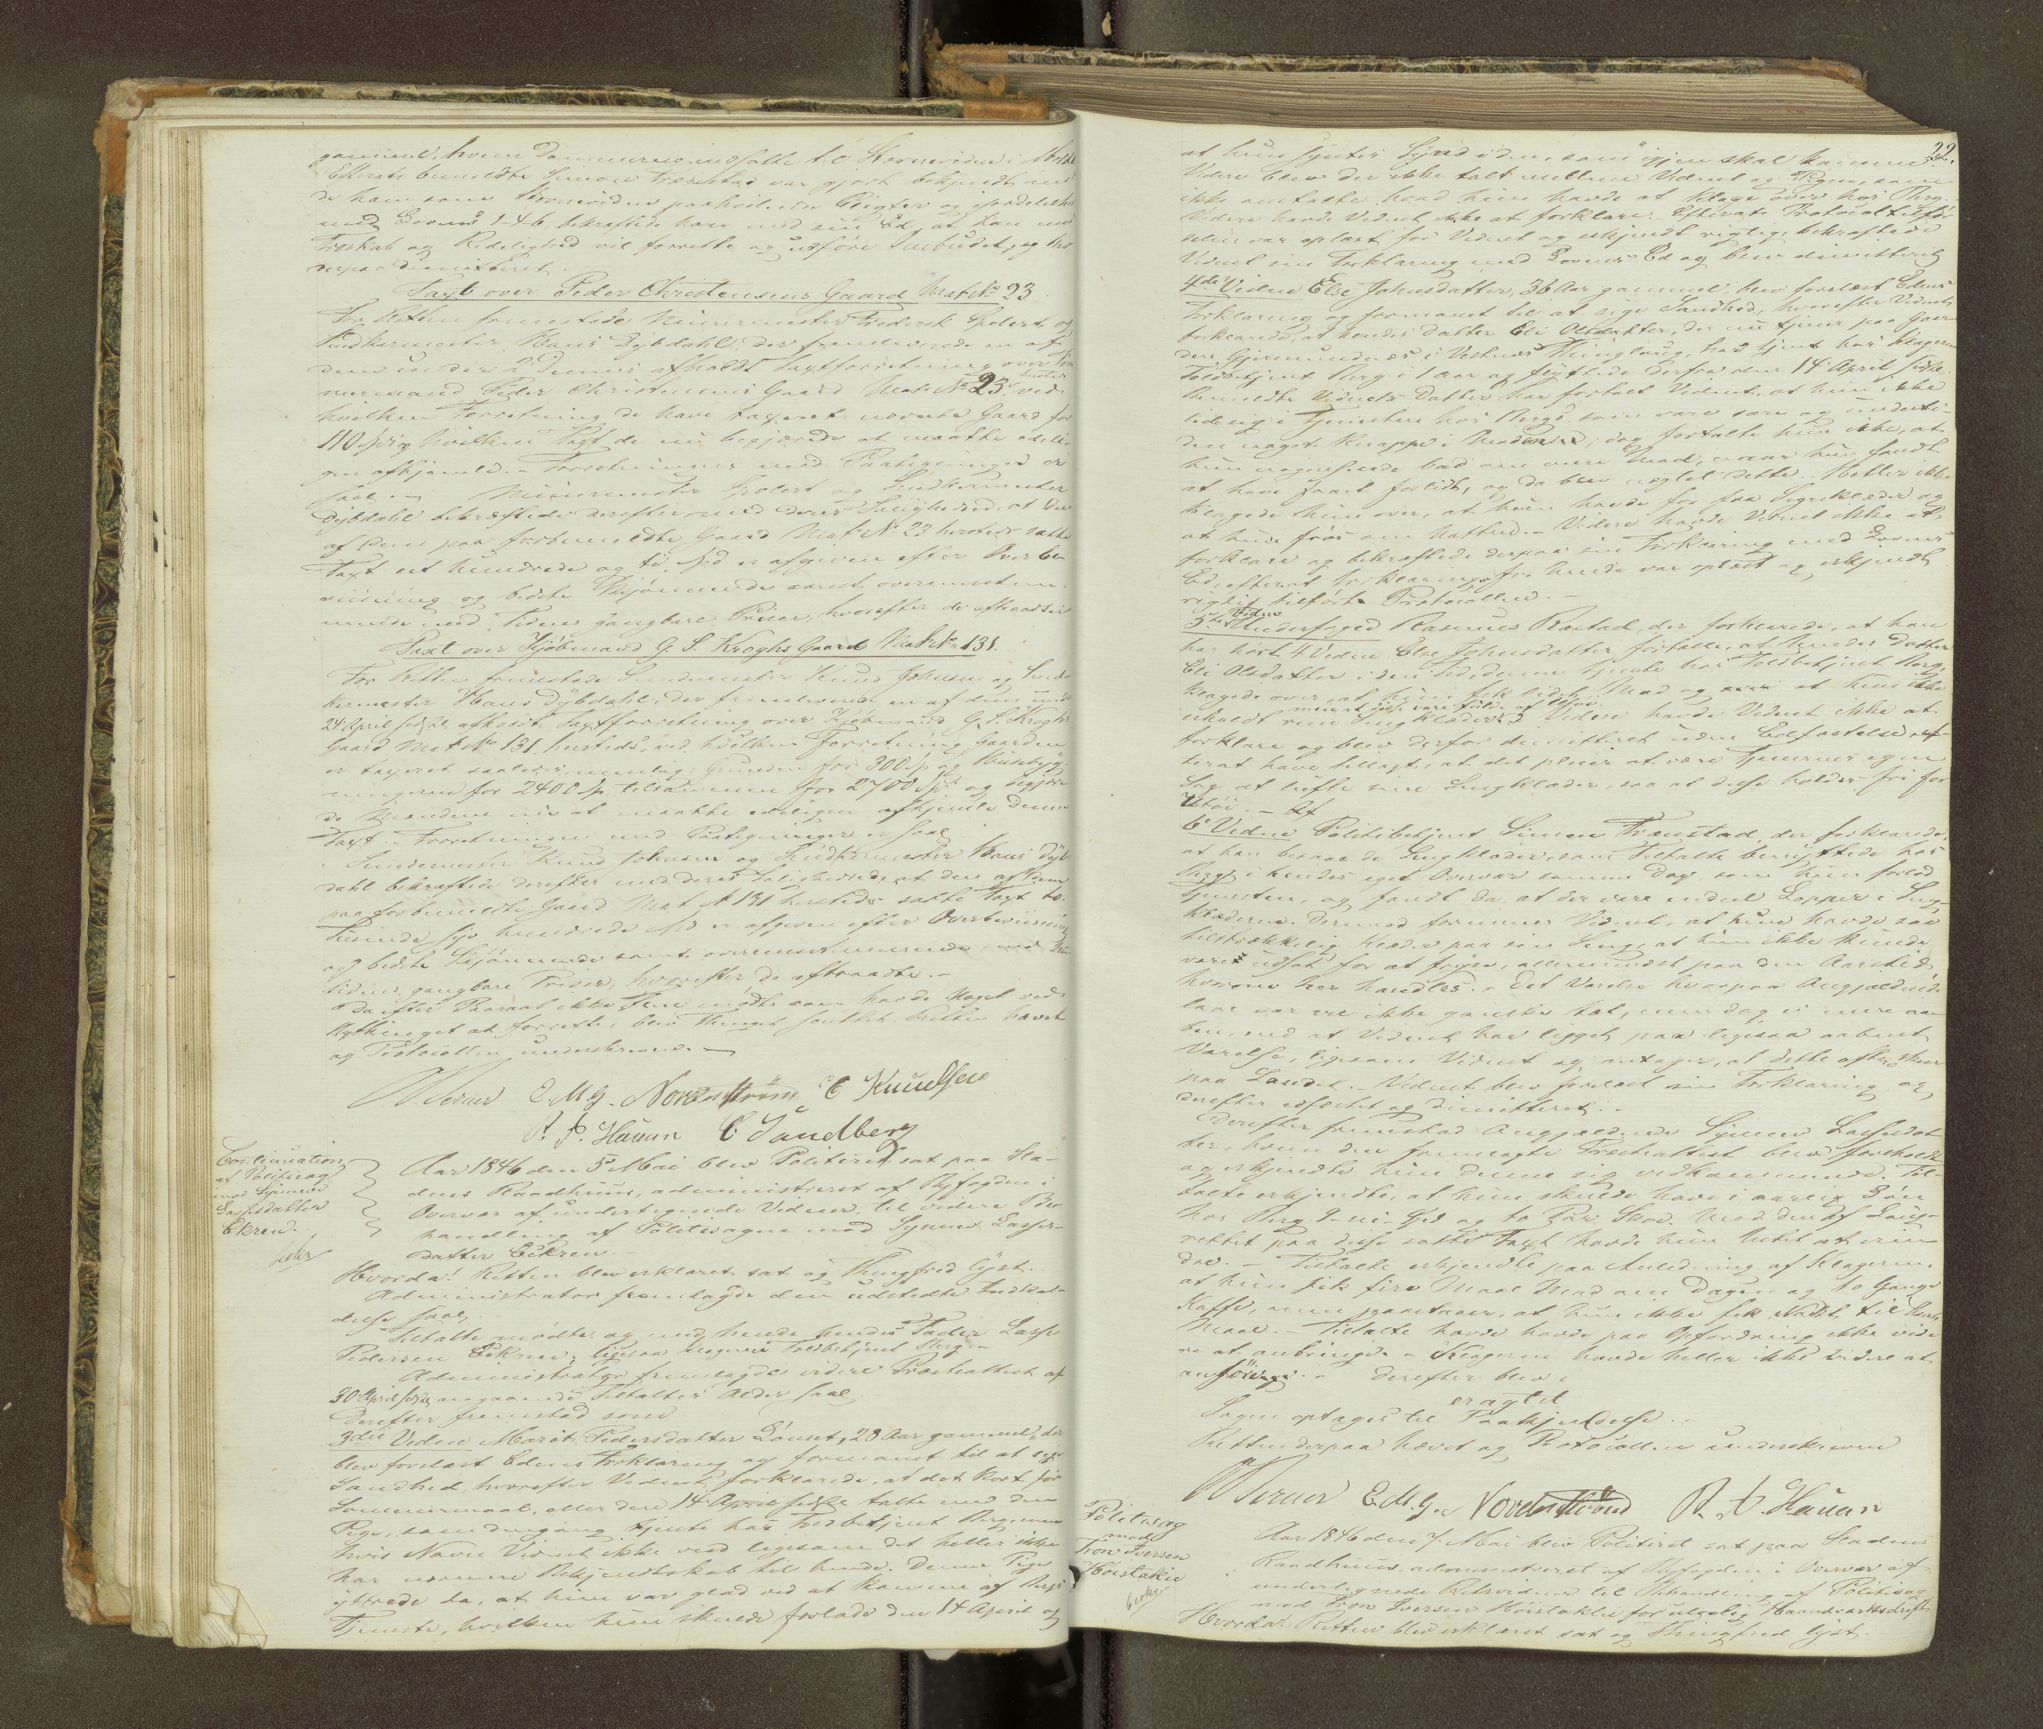 gammel, hvem Dommeren indsatte til Stevnevidne i Molde
Efterat bemeldte Simen Træestad var gjort bekjendt med
de ham som Stevnevidne paahvilende Pligter og især
med Lovens 1-4-6, bekræftede han med sin Ed, at han med
Troskab og Redelighed vil forrette og udføre Ombudet, og blev
derpaa dimitteret.
Taxt over Peder Christensens Gaard Mat: No 23
For Retten fremstode Muurmester Frederik Spolert og
Snedkermester Hans Dybdahl, der fremleverede en af
dem under 2 dennes afholdt Taxtforretning over Tøm-
mermand Peder Christensens Gaard Mat: No 23 ved
hvilken Forretning de have taxeret nævnte Gaard for
110 Spd, hvilken Taxt de nu begjærede at maatte edeli-
gen afhjemle. Forretningen med Paategninger er
saal. Muurmester Spolert og Snedkermester
Dybdahl bekræftede derefter med deres Saligheds Ed, at den
af dem paa forbemeldte Gaard Mat No 23 hersteds satte
Taxt eet hundrede og ti Spd er afgiven efter Overbe-
viisning og bedste Skjønnende samt overeensstem-
mende med Tidens gangbare Priser, hvorefter de aftraadte.
Taxt over Kjøbmand G. S. Kroghs Gaard Mat No 131.
For Retten fremstode Smedemester Knud Johnsen og Sned-
kermester Hans Dybdahl, der fremleverede en af dem under
24 April sidstl. afholdt Taxtforretning over Kjøbmand G. S. Kroghs
Gaard Mat No 131 hersteds, ved hvilken Forretning Gaarden
er taxeret saaledes, nemlig: Grunden for 300 Sp og Huusbyg-
ningerne for 2400 Sp tilsammen for 2700 Sp og begjære-
de Mændene nu at maatte edeligen afhjemle denne
Taxt. Forretningen med Paategninger er saal.
Smedemester Knud Johnsen og Snedkermester Hans Dyb-
dahl bekræftede derefter med deres Saligheds Ed at den af dem
paa forbemeldte Gaard Mat No 131 hersteds satte Taxt to
Tusinde Syv hundrede Spd er afgiven efter Overbeviisning
og bedste Skjønnende samt overeensstemmende med
Tidens gangbare Priser, hvorefter de aftraadte.
Da efter Paaraab ikke Flere mødte som havde Noget ved
Bythinget at forrette, blev Thinget sluttet, Retten hævet
og Protocollen underskreven.
Werner E. M. G. Nordenstrøm C Knudsen
A. P. Hauun C. Sandberg
Continuation
af Politisag
mod Synneve
Lassesdatter
Ekren.
Aar 1846 den 5 Mai blev Politiret sat paa Sta-
dens Raadhuus, administreret af Byfogden i
Overvær af undertegnede Vidner, til videre Be-
handling af Politisagen mod Synneve Lasses-
datter Eikren.
Hvorda! Retten blev erklæret sat og Thingfred lyst.
Administrator fremlagde den udstedte Indkal-
delse saal.
Tiltalte mødte og med hende hendes Fader Lasse
Pedersen Eikren, ligesaa Klageren Toldbetjent Berg.
Administrator fremlagde videre Præsteattest af
30 April sidstl. angaaende Tiltaltes Alder saal.
Derefter fremstod som
3die Vidne Marit Pedersdatter Lønset, 20 Aar gammel, der
blev forelæst Edens Forklaring og formanet til at sige
Sandhed, hvorefter Vidnet forklarede, at det kort før
Sommermaal, eller den 14 April sidstl. talte med den
Pige, som dengang tjente hos Toldbetjent Berg, men
hvis Navn Vidnet ikke veed ligesom det heller ikke
har nærmere Bekjendtskab til hende. Denne Pige
yttrede da, at hun var glad ved at komme af Bergs
Tjeneste, hvilken hun skulde forlade den 14 April og
22.
at hun syntes Synd i den, som igjen skal komme.
Videre blev der ikke talt mellem Vidnet og Pigen, som
ikke omtalte hvad hun havde at klage over hos Berg.
Videre havde Vidnet ikke at forklare. Efterat Protocoltilfør-
selen var oplæst for Vidnet og erkjendt rigtig, bekræftede
Vidnet sin Forklaring med Lovens Ed og blev dimitteret
4de Vidne Else Johnsdatter, 36 Aar gammel, blev forelæst Edens
Forklaring og formanet til at sige Sandhed, hvorefter Vidnet
forklarede, at hendes Datter Eli Olsdatter, der nu tjener paa Gaar-
den Gjermundnæs i Vestnæs Thinglaug, har tjent hos Klageren
Toldbetjent Berg i 1 Aar og flyttede derfra den 14 April sidstl.
Bemeldte Vidnets Datter har fortalt Vidnet, at hun ikke
led sig i Tjenesten hos Bergs som vare sære og underti-
den noget knappe i Maden, dog fortalte hun ikke, at
hun nogensinde bad om mere Mad, naar hun fandt
at have faaet forlidt, og da blev nægtet dette. Heller ikke
klagede hun over, at hun havde for faa Sengeklæder og
at hun frøs om Natten. Videre havde Vidnet ikke at
forklare og bekræftede derpaa sin Forklaring med Lovens
Ed, efterat Forklaringen for hende var oplæst og erkjendt
rigtig tilført Protocollen.
5te Vidne Underfoged Rasmus Røstad, der forklarede, at han
har hørt 4 Vidne Else Johnsdatter fortælle, at hendes Datter
Eli Olsdatter i den Tid, denne tjente hos Toldbetjent Berg,
klagede over, at hun fik lidet Mad og at hun ikke
erholdt rene Sengklæder. Videre havde Vidnet ikke at
forklare og blev derfor dimitteret uden Edfæstelse ef-
terat have tillagt, at det pleier at være Tjenernes egen
Sag at lufte sine Sengklæder, saa at disse holdes fri for
Utøi.
6te Vidne Politibetjent Simen Træestad, der forklarede,
at han besaae de Sengklæder, som Tiltalte benyttede hos
Berg i hendes eget Overvær samme Dag, som hun forlod
Tjenesten, og fandt da, at der vare endeel Lopper i Seng-
klæderne. Dermed formener Vidnet, at hun havde saa
tilstrækkelig Klæder paa sin Seng, at hun ikke kunde
været udsat for at fryse, allermindst paa den Aarstid,
hvorom her handles. Det Værelse hvorpaa Angjældende
laae var vel ikke ganske tæt, men dog ei mere aa-
ben, end at Vidnet har ligget paa ligesaa aabent
Værelse, ligesom Vidnet og antager, at dette ofte skeer
paa Landet. Vidnet blev forelæst sin Forklaring og
derefter edfæstet og dimitteret.
Derefter fremstod Angjældende Synneve Lassesdat-
ter, hvem den fremlagte Præsteattest blev foreholdt
og erkjendte hun denne sig vedkommende. Til-
talte erkjendte, at hun skulde have i aarlig Løn
hos Berg 9 – ni – Spd og to Par Skoe. Mod den af Laug-
rettet paa disse satte Taxt havde hun Intet at erin-
dre. – Tiltalte erkjendte paa Anledning af Klageren,
at hun fik fire Maal Mad om Dagen og to Gange
Kaffe, men paastaaer, at hun ikke fik Nok til hvert
Maal. – Tiltalte havde paa Opfordring ikke vide-
re at anbringe. – Klageren havde heller ikke videre at
anføre. – Derefter blev
eragtet
Sagen optages til Paakjendelse.
Retten derpaa hævet og Protocollen underskreven
Werner E. M. G. Nordenstrøm A. P. Hauun
Politisag
mod
Tron Iversen
Høistakli
Aar 1846 den 7 Mai blev Politiret sat paa Stadens
Raadhuus, administreret af Byfogden i Overvær af
undertegnede Retsvidner til Behandling af Politisag
mod Tron Iversen Høistakli for ulovlig Haandværksdrift
Hvorda! Retten blev erklæret sat og Thingfred lyst.